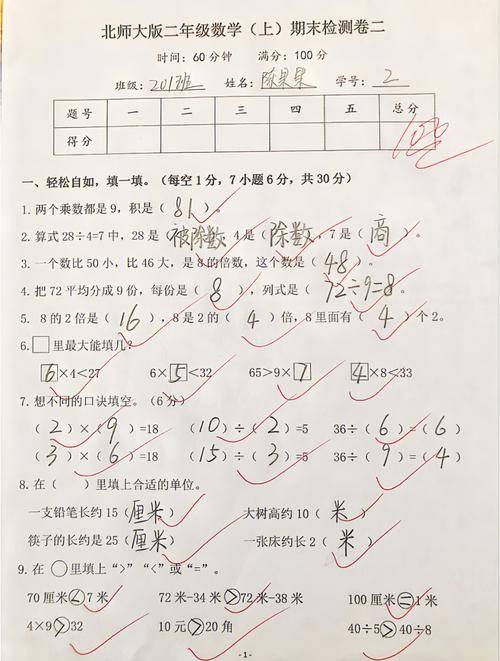 北师大版二年级数学（上）期末检测卷二
时间：60分钟 满分：100分
班级：201班 姓名：陈果果 学号：2
题号 一 二 三 四 五 总分
得分 100
一、轻松自如，填一填。（每空1分，7小题6分，共30分）
1. 两个乘数都是9，积是（81）。
2. 算式28÷4=7中，28是（被除数），4是（除数），7是（商）。
3. 一个数比50小，比46大，是8的倍数，这个数是（48）。
4. 把72平均分成9份，每份是（8），列式是（72÷9=8）。
5. 8的2倍是（16），8是2的（4）倍，8里面有（4）个2。
6. □里最大能填几？
6×4<27 6×5<32 65>9×7 4×8<33
7. 想不同的口诀填空。（6分）
（2）×（9）=18 （10）÷（2）=5 36÷（6）=（6）
（3）×（6）=18 （15）÷（3）=5 36÷（9）=（4）
8. 在（ ）里填上合适的单位。
一支铅笔长约15（厘米） 大树高约10（米）
筷子的长约是25（厘米） 一张床约长2（米）
9. 在○里填上“>”“<”或“=”。
70厘米<7米 72米-34米>72米-38米 100厘米=1米
4×9>32 10元>20角 40÷5>40÷8
-1-